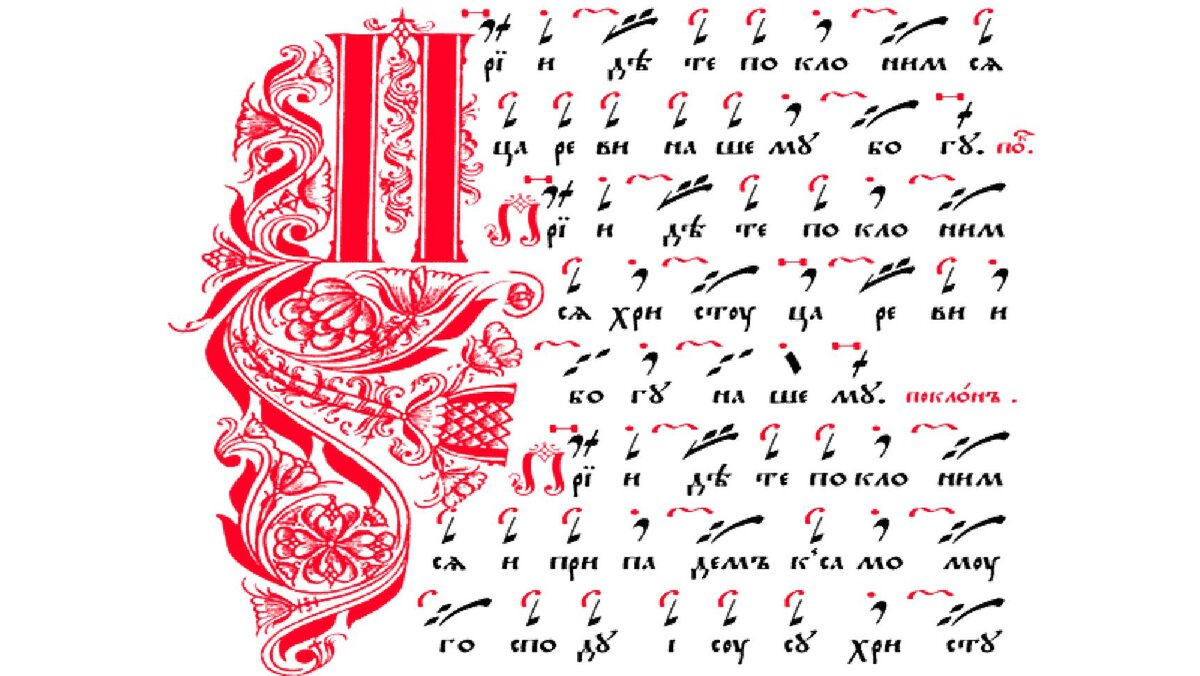 Прїидѣте поклонимсѧ
цареви нашемꙋ богꙋ. по҇к.
Прїидѣте поклоним
сѧ христоу цареви и
богꙋ нашемꙋ. покло́нъ.
Прїидѣте поклоним
сѧ и припадемъ к̾самомоу
господꙋ їсоусꙋ христꙋ